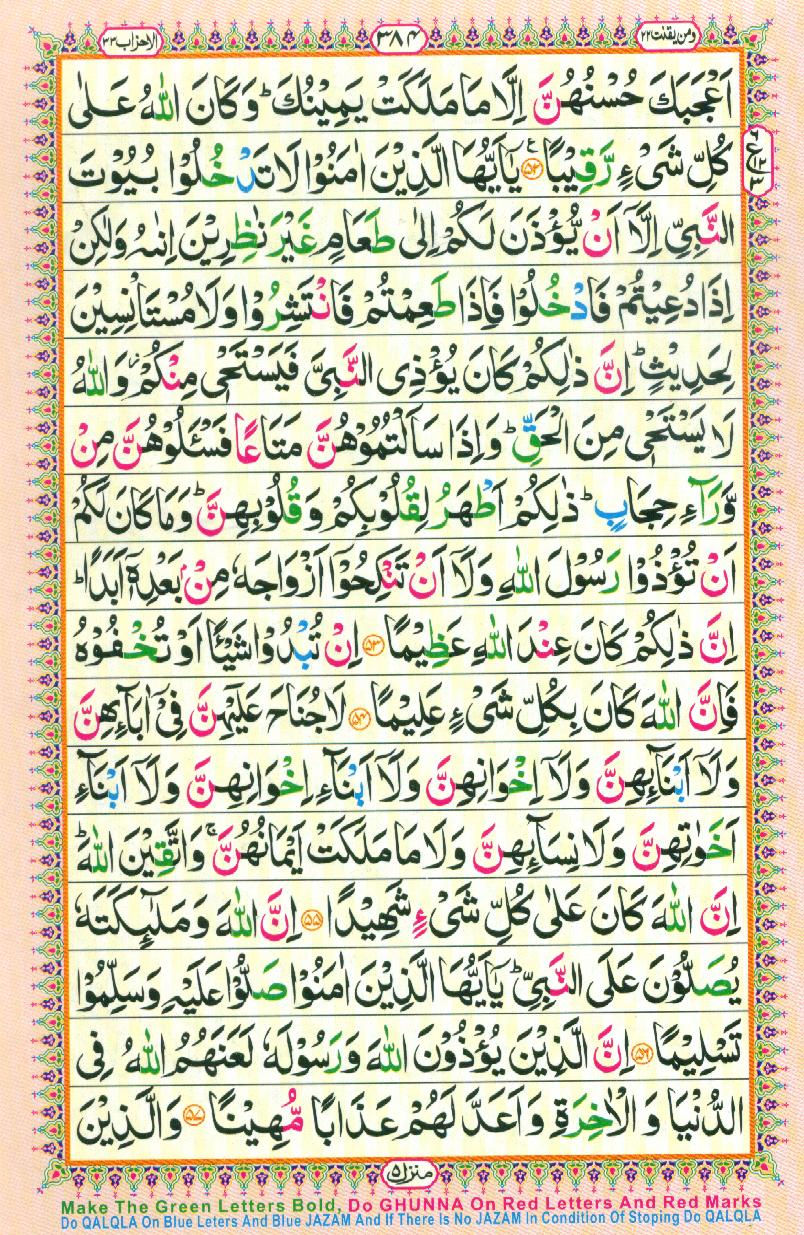 ومن يقنت ٢٢
٣٨٤
الاحزاب ٣٣
اَعْجَبَكَ حُسْنُهُنَّ اِلَّا مَا مَلَكَتْ يَمِيْنُكَ ؕ وَكَانَ اللّٰهُ عَلٰى
كُلِّ شَىْءٍ رَّقِيْبًا ﴿۵۲﴾ يٰۤاَيُّهَا الَّذِيْنَ اٰمَنُوْا لَا تَدْخُلُوْا بُيُوْتَ
النَّبِىِّ اِلَّاۤ اَنْ يُّؤْذَنَ لَكُمْ اِلٰى طَعَامٍ غَيْرَ نٰظِرِيْنَ اِنٰٮهُ وَلٰكِنْ
اِذَا دُعِيْتُمْ فَادْخُلُوْا فَاِذَا طَعِمْتُمْ فَانْتَشِرُوْا وَلَا مُسْتَاْنِسِيْنَ
لِحَدِيْثٍ ؕ اِنَّ ذٰلِكُمْ كَانَ يُؤْذِى النَّبِىَّ فَيَسْتَحْىٖ مِنْكُمْ ۫ وَاللّٰهُ
لَا يَسْتَحْىٖ مِنَ الْحَقِّ ؕ وَاِذَا سَاَلْتُمُوْهُنَّ مَتَاعًا فَسْئَلُوْهُنَّ مِنْ
وَّرَآءِ حِجَابٍ ؕ ذٰلِكُمْ اَطْهَرُ لِقُلُوْبِكُمْ وَقُلُوْبِهِنَّ ؕ وَمَا كَانَ لَكُمْ
اَنْ تُؤْذُوْا رَسُوْلَ اللّٰهِ وَلَاۤ اَنْ تَنْكِحُوْۤا اَزْوَاجَهٗ مِنْۢ بَعْدِهٖۤ اَبَدًا ؕ
اِنَّ ذٰلِكُمْ كَانَ عِنْدَ اللّٰهِ عَظِيْمًا ﴿۵۳﴾ اِنْ تُبْدُوْا شَيْئًا اَوْ تُخْفُوْهُ
فَاِنَّ اللّٰهَ كَانَ بِكُلِّ شَىْءٍ عَلِيْمًا ﴿۵۴﴾ لَا جُنَاحَ عَلَيْهِنَّ فِىْۤ اٰبَآئِهِنَّ
وَلَاۤ اَبْنَآئِهِنَّ وَلَاۤ اِخْوَانِهِنَّ وَلَاۤ اَبْنَآءِ اِخْوَانِهِنَّ وَلَاۤ اَبْنَآءِ
اَخَوٰتِهِنَّ وَلَا نِسَآئِهِنَّ وَلَا مَا مَلَكَتْ اَيْمَانُهُنَّ ۚ وَاتَّقِيْنَ اللّٰهَ ؕ
اِنَّ اللّٰهَ كَانَ عَلٰى كُلِّ شَىْءٍ شَهِيْدًا ﴿۵۵﴾ اِنَّ اللّٰهَ وَمَلٰٓئِكَتَهٗ
يُصَلُّوْنَ عَلَى النَّبِىِّ ؕ يٰۤاَيُّهَا الَّذِيْنَ اٰمَنُوْا صَلُّوْا عَلَيْهِ وَسَلِّمُوْا
تَسْلِيْمًا ﴿۵۶﴾ اِنَّ الَّذِيْنَ يُؤْذُوْنَ اللّٰهَ وَرَسُوْلَهٗ لَعَنَهُمُ اللّٰهُ فِى
الدُّنْيَا وَالْاٰخِرَةِ وَاَعَدَّ لَهُمْ عَذَابًا مُّهِيْنًا ﴿۵۷﴾ وَالَّذِيْنَ
منزل ۵
Make The Green Letters Bold, Do GHUNNA On Red Letters And Red Marks
Do QALQLA On Blue Leters And Blue JAZAM And If There Is No JAZAM In Condition Of Stoping Do QALQLA